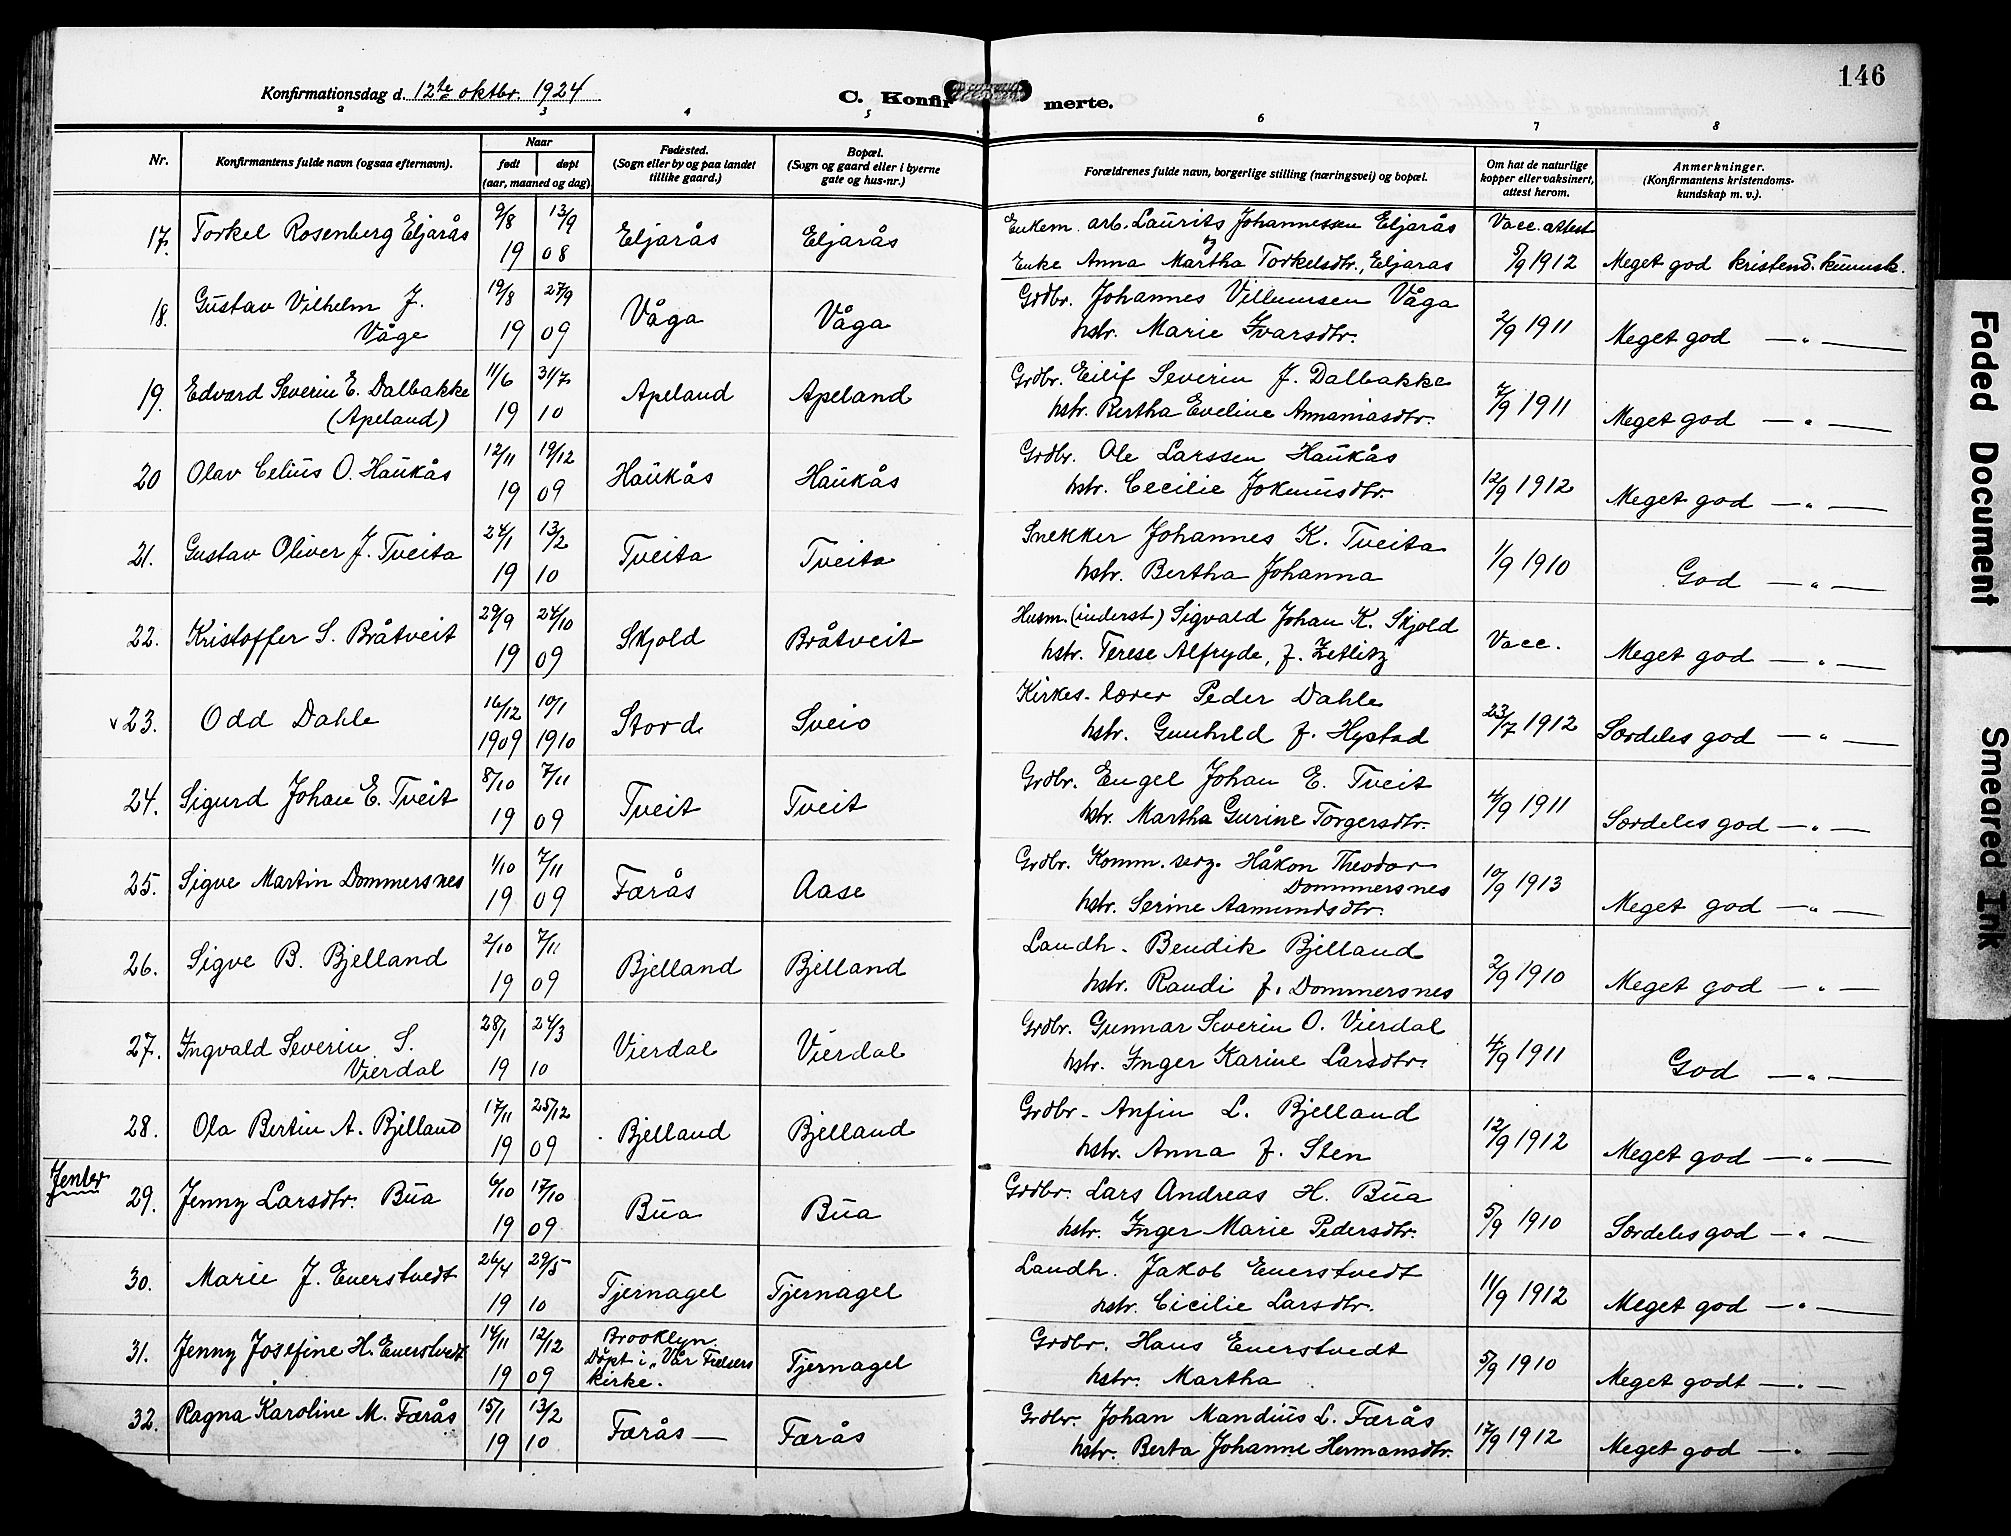 146
Konfirmationsdag d. 12te oktbr. 1924
C. Konfirmerte.
2 3 4 5 6 7 8
Nr.
Konfirmantens fulde navn (ogsaa efternavn).
Naar
født
døpt
(aar, maaned og dag)
Fødested.
(Sogn eller by og paa landet
tillike gaard.)
Bopæl.
(Sogn og gaard eller i byerne
gate og hus-nr.)
Forældrenes fulde navn, borgerlige stilling (næringsvei) og bopæl.
Om hat de naturlige
kopper eller vaksinert,
attest herom.
Anmerkninger.
(Konfirmantens kristendoms-
kundskap m. v.).
17. Torkel Rosenberg Eljarås 9/8 13/9 Eljarås Eljarås Enkem. arb. Laurits Johannessen Eljarås Vacc. attest
19 08 og Enke Anna Martha Torkelsdtr., Eljaras 5/9 1912 Meget god kristend. kunnsk.
18. Gustav Vilhelm J. 19/8 27/9 Våga Våga Grdbr. Johannes Villumsen Våga
Våge 19 09 hstr. Marie Ivarsdtr. 2/9 1911 Meget god — " —
19. Edvard Severin E. Dalbakke 11/6 31/7 Apeland Apeland Grdbr. Eilif Severin J. Dalbakke
(Apeland) 19 10 hstr. Bertha Eveline Annaniasdtr. 7/9 1911 Meget god — " —
20 Olav Celius O. Haukås 12/11 19/12 Haukås Haukås Grdbr. Ole Larssen Haukås
19 09 hstr. Cecilie Jokumsdtr. 12/9 1912 Meget god — " —
21. Gustav Oliver J. Tveita 24/1 13/2 Tveita Tveita Snekker Johannes K. Tveita
19 10 hstr. Bertha Johanna 1/9 1910 God — " —
22. Kristoffer S. Bråtveit 29/9 24/10 Skjold Bråtveit Husm. (inderst) Sigvald Johan K. Skjold
19 09 hstr. Terese Alfryde, f. Zetlitz Vacc. Meget god — " —
v 23. Odd Dahle 16/12 10/1 Stord Sveio Kirkes. lærer Peder Dahle
1909 1910 hstr. Gunhild f. Hystad 23/7 1912 Særdeles god — " —
24. Sigurd Johan E. Tveit 8/10 7/11 Tveit Tveit Grdbr. Engel Johan E. Tveit
19 09 hstr. Martha Gurine Torgersdtr. 4/9 1911 Særdeles god — " —
25. Sigve Martin Dommersnes 1/10 7/11 Færås Aase Grdbr. Komm. serg. Håkon Theodor
Dommersnes
19 09 hstr. Serine Aamundsdtr. 10/9 1913 Meget god — " —
26. Sigve B. Bjelland 2/10 7/11 Bjelland Bjelland Landh. Bendik Bjelland
19 09 hstr. Randi f. Dommersnes 2/9 1910 Meget god — " —
27. Ingvald Severin S. 28/1 24/3 Vierdal Vierdal Grdbr. Gunnar Severin O. Vierdal
Vierdal 19 10 hstr. Inger Karine Larsdtr. 4/9 1911 God — " —
28. Ola Bertin A. Bjelland 17/11 25/12 Bjelland Bjelland Grdbr. Anfin L. Bjelland
19 09 hstr. Anna f. Sten 12/9 1912 Meget god — " —
Jenter
29. Jenny Larsdtr. Bua 6/10 17/10 Bua Bua Grdbr. Lars Andreas H. Bua
19 09 hstr. Inger Marie Pedersdtr. 5/9 1910 Særdeles god — " —
30. Marie J. Enerstvedt 26/4 29/5 Tjernagel Tjernagel Landh. Jakob Enerstvedt
19 10 hstr. Cicilie Larsdtr. 11/9 1912 Meget god — " —
31. Jenny Josefine H. Enerstvedt 14/11 12/12 Brooklyn. Tjernagel Grdbr. Hans Enerstvedt
Døpt i „Vår Frelsers
19 09 kirke. hstr. Martha 5/9 1910 Meget godt — " —
32. Ragna Karoline M. Færås 15/1 13/2 Færås — Færås Grdbr. Johan Mandius L. Færås
19 10 hstr. Berta Johanne Hermansdtr. 17/9 1912 Meget god — " —
Faded Document
Smeared Ink